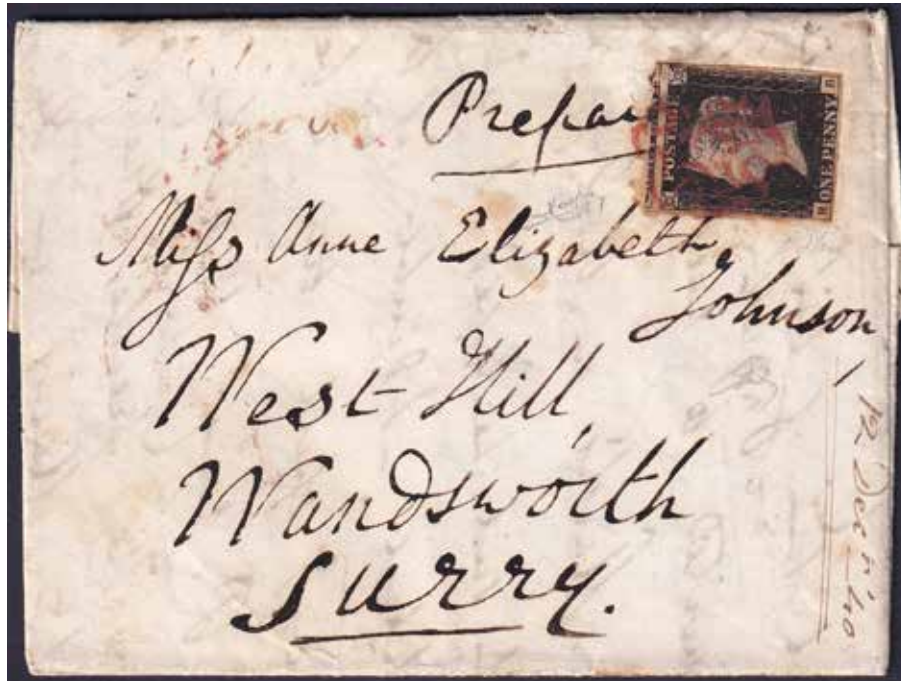 Prepaid
POSTAGE
ONE PENNY
Miss Anne Elizabeth
Johnson,
West Hill,
Wandsworth
Surry.
12 Decr '40